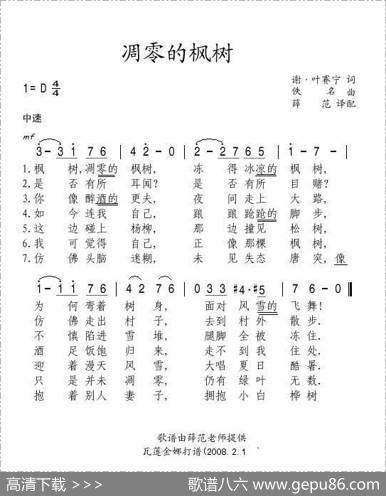 凋零的枫树
1=D 4/4
谢·叶赛宁 词
佚 名 曲
薛 范 译配
中速
mf
3-3i 76 | 42-0 | 2-2765 | i-7- |
1.枫 树,凋零的 枫树, 冻 得冰凉的 枫 树,
2.是 否有所 耳闻? 是 否有所 目 睹?
3.你 像醉酒的 更夫, 夜 间走上 大 路,
4.如 今连我 自己, 踉 踉跄跄的 脚 步,
5.这 边碰上 杨柳, 那 边撞见 松 树,
6.我 可觉得 自己, 正 像那棵 枫 树,
7.仿 佛头脑 迷糊, 未 见失态 唐 突,像
i-i i76 | 13-0 | 033#4·#5 | 76-0 ‖
为 何弯着 树 身, 面对 风 雪的 飞舞!
仿 佛走出 村 子, 去到 村 外 散步.
不 慎陷进 雪 堆, 腿脚 全 被 冻住.
酒 足饭饱 归 来, 走不 到 我 住处.
迎 着漫天 风 雪, 大唱 夏 日 酷暑.
只 是并未 凋 零, 仍有 绿 叶 无数.
抱 着别人 妻 子, 拥抱 小 白 桦树
歌谱由薛范老师提供
瓦莲金娜打谱(2008.2.1
高清下载 >>> 歌谱八六 @ www.gepu86.com